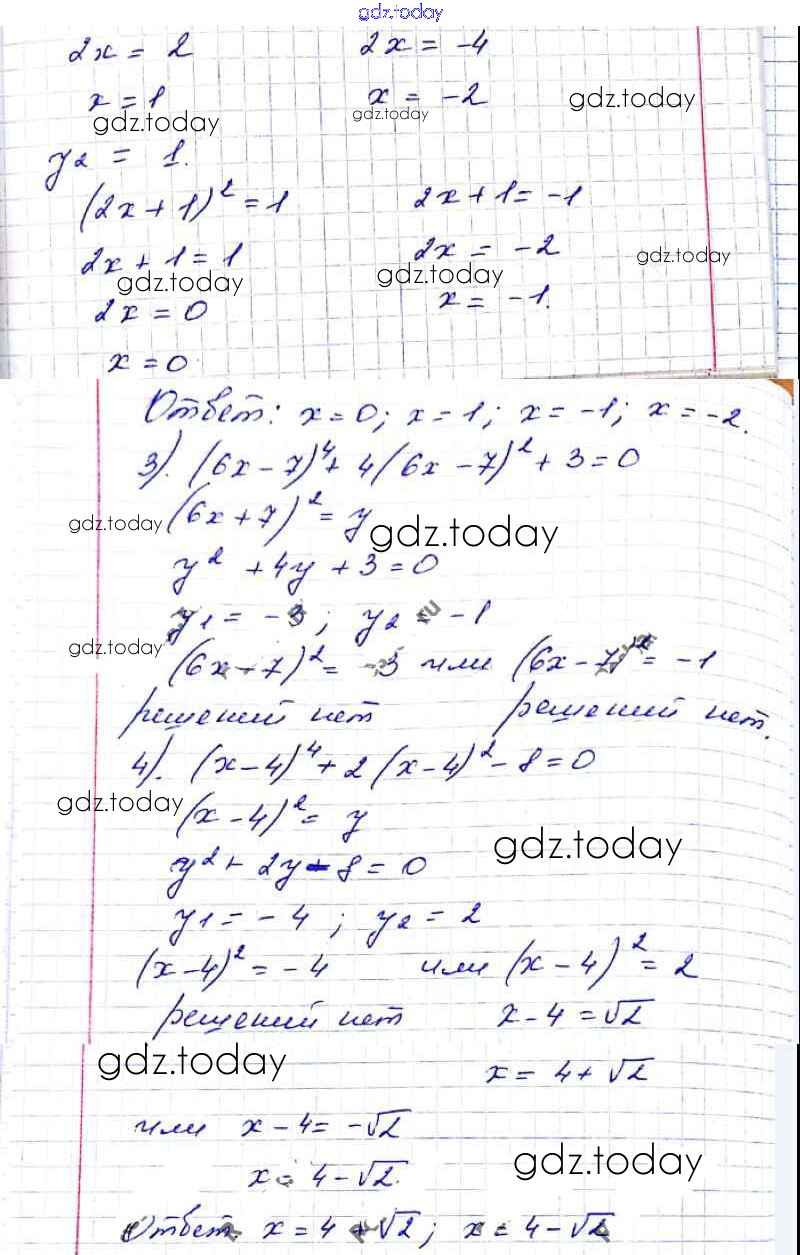 gdz.today
2x = 2 2x = -4
x = 1 x = -2 gdz.today
gdz.today gdz.today
y₂ = 1.
(2x + 1)² = 1 2x + 1 = -1
2x + 1 = 1 2x = -2 gdz.today
gdz.today gdz.today
2x = 0 x = -1.
x = 0
Ответ: x = 0; x = 1; x = -1; x = -2.
3). (6x - 7)⁴ + 4(6x - 7)² + 3 = 0
gdz.today (6x + 7)² = y gdz.today
y² + 4y + 3 = 0
y₁ = -3; y₂ = -1
gdz.today (6x - 7)² = -3 или (6x - 7)² = -1
решений нет решений нет.
4). (x - 4)⁴ + 2(x - 4)² - 8 = 0
gdz.today (x - 4)² = y gdz.today
y² + 2y - 8 = 0
y₁ = -4; y₂ = 2
(x - 4)² = -4 или (x - 4)² = 2
решений нет x - 4 = √2
gdz.today x = 4 + √2
или x - 4 = -√2
x = 4 - √2. gdz.today
Ответ: x = 4 + √2; x = 4 - √2